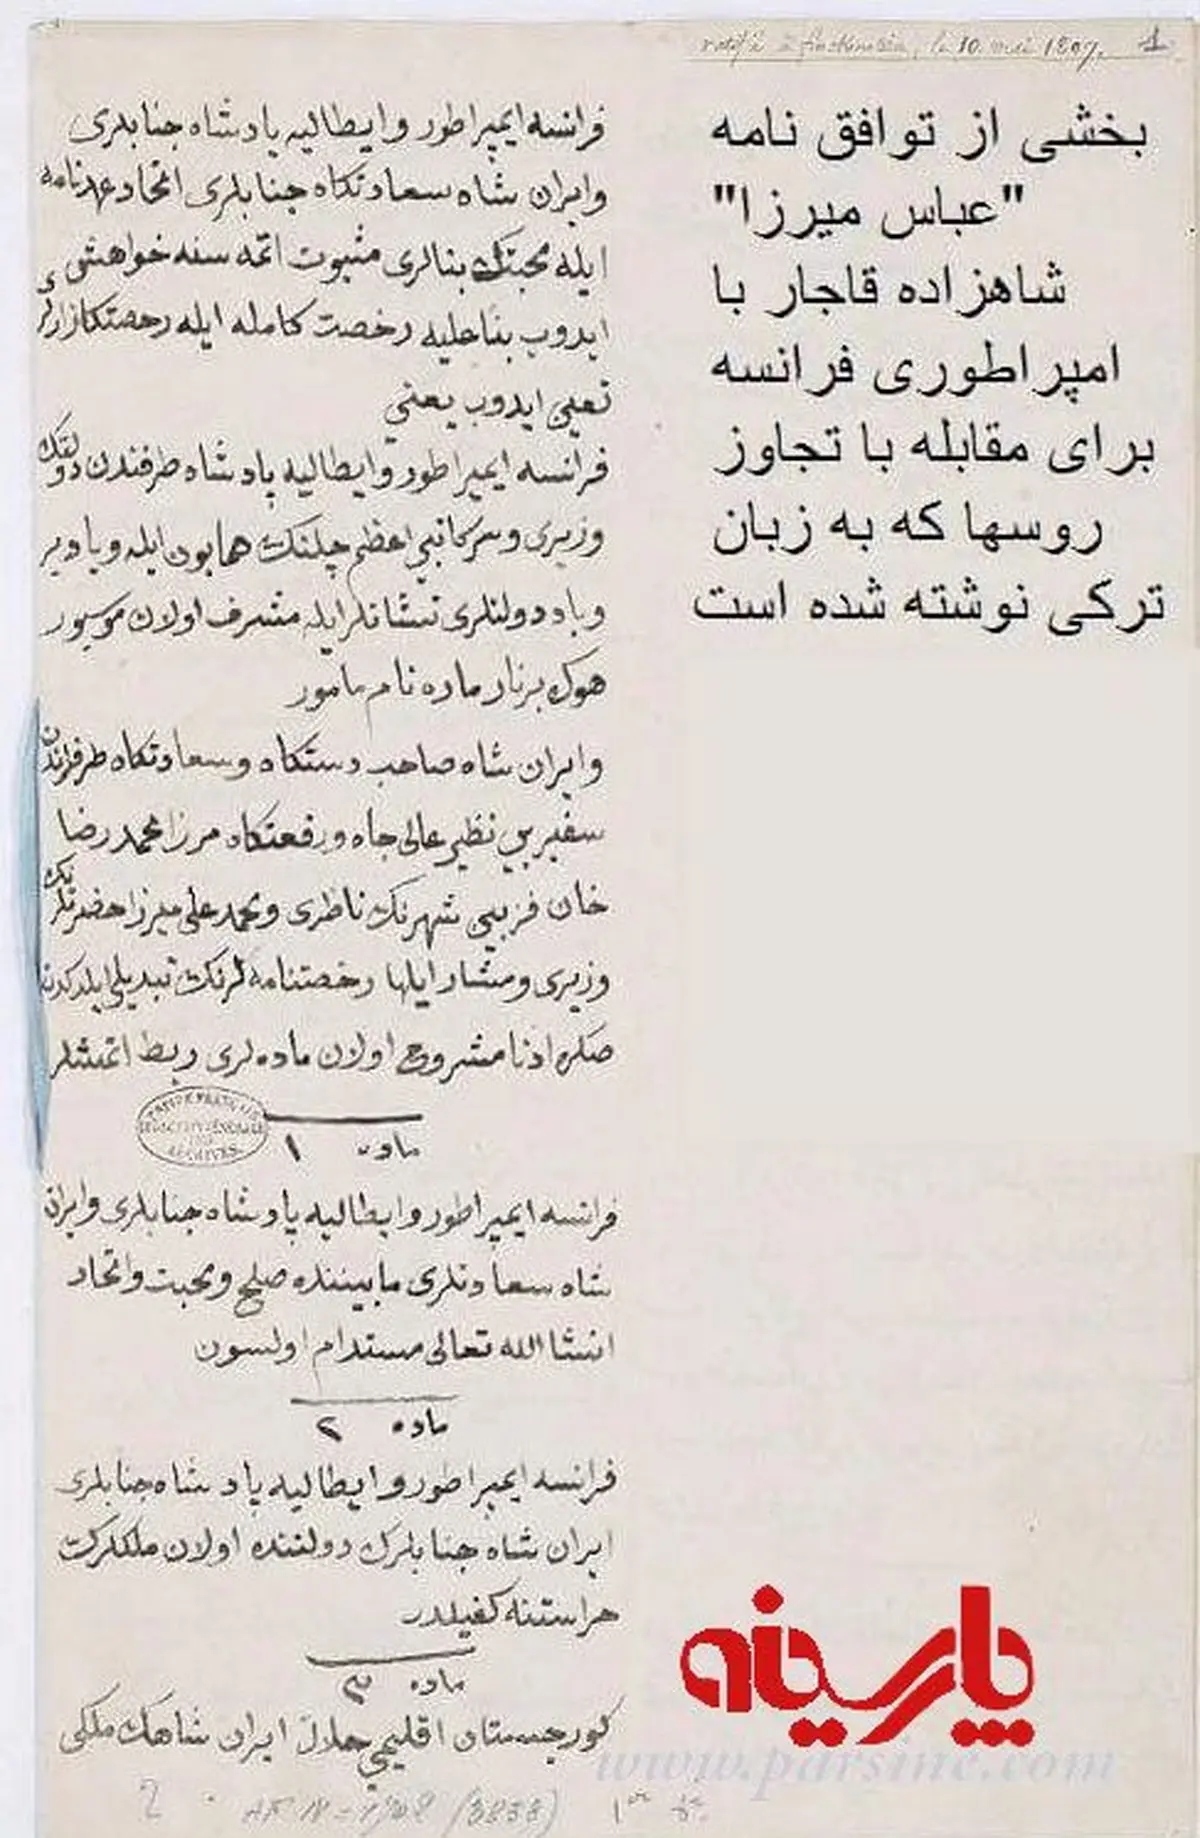 ratifié à Finckenstein, le 10 mai 1807. 1
بخشی از توافق نامه
"عباس میرزا"
شاهزاده قاجار با
امپراطوری فرانسه
برای مقابله با تجاوز
روسها که به زبان
ترکی نوشته شده است
فرانسه ایمپراطور و ایطالیه پادشاه جنابلری
وایران شاه سعادتکاه جنابلری اتحاد عهدنامه
ایله محبتک بنالری مثبوت اتمه سنه خواهشی
ایدوب بناعلیه رخصت کامله ایله رخصتکارلری
تعیین ایدوب یعنی
فرانسه ایمپراطور وایطالیه پادشاه طرفندن دولتک
وزیری وسرکاتبی اعظم چلنک همایون ایله و
و باد دولتلری نشانلر ایله مشرف اولان موسیور
هوک برنار ماره نام مامور
وایران شاه صاحب دستکاه وسعادتکاه طرفلرندن
سفیر بی نظیر عالی جاه ورفعتکاه مرزا محمد رضا
خان قزبینی شهرنک ناظری ومحمد علی میرزا حضرتلرینک
وزیری ومشار ایلها رخصتنامه لرنک تبدیلی ایلدکدن
صکره ادنا مشروح اولان ماده لری ربط اتمشلر
ماده ۱
فرانسه ایمپراطور وایطالیه پادشاه جنابلری وایران
شاه سعادتلری مابیننده صلح ومحبت واتحاد
انشا الله تعالی مستدام اولسون
ماده ۲
فرانسه ایمپراطور وایطالیه پادشاه جنابلری
ایران شاه جنابلرک دولتنده اولان ملکلرک
حراستنه کفیلدر
ماده ۳
کورجستان اقلیمی حلال ایران شاهک ملکی
پارسینه
www.parsine.com
2 AF IV-1 (3833) 1